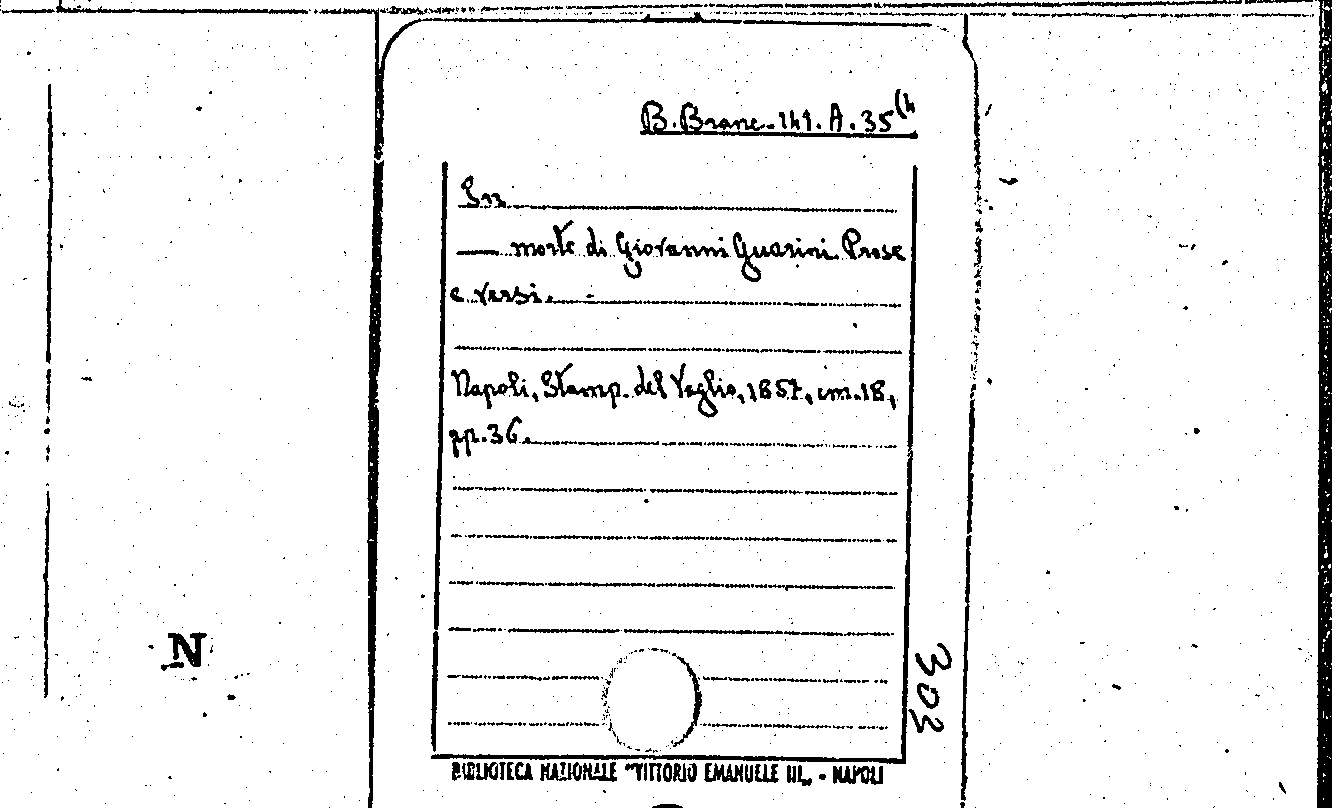 B. Branc. 141. A. 35(4
In
— morte di Giovanni Guarini. Prose
e versi. -
Napoli, Stamp. del Veglio, 1857, cm. 18,
pp. 36.
303
N
BIBLIOTECA NAZIONALE "VITTORIO EMANUELE III„ - NAPOLI